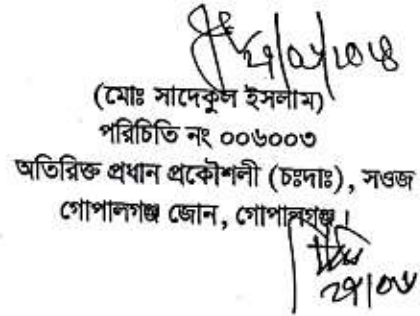 (মোঃ সাদেকুল ইসলাম)
পরিচিতি নং ০০৬০০৩
অতিরিক্ত প্রধান প্রকৌশলী (চঃদাঃ), সওজ
গোপালগঞ্জ জোন, গোপালগঞ্জ।